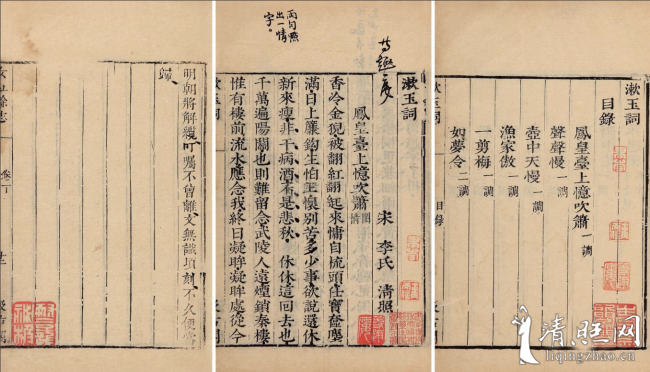 漱玉詞
目錄
鳳皇臺上憶吹簫 一調
聲聲慢 一調
壺中天慢 一調
漁家傲 一調
一剪梅 一調
如夢令 二調
目錄
漱玉詞
宋 李氏 清照
鳳皇臺上憶吹簫 閨情
香冷金猊被翻紅翻起來慵自梳頭任寶奩塵
滿日上簾鈎生怕離懷別苦多少事欲說還休
新來瘦非干病酒不是悲秋 休休這回去也
千萬遍陽關也則難留念武陵人遠煙鎖秦樓
惟有樓前流水應念我終日凝眸凝眸處從今
兩句照
出一情
字。
明朝將解纜叮囑不曾離支無識頃刻不久便當
歸
清照网
liqingzhao.cn